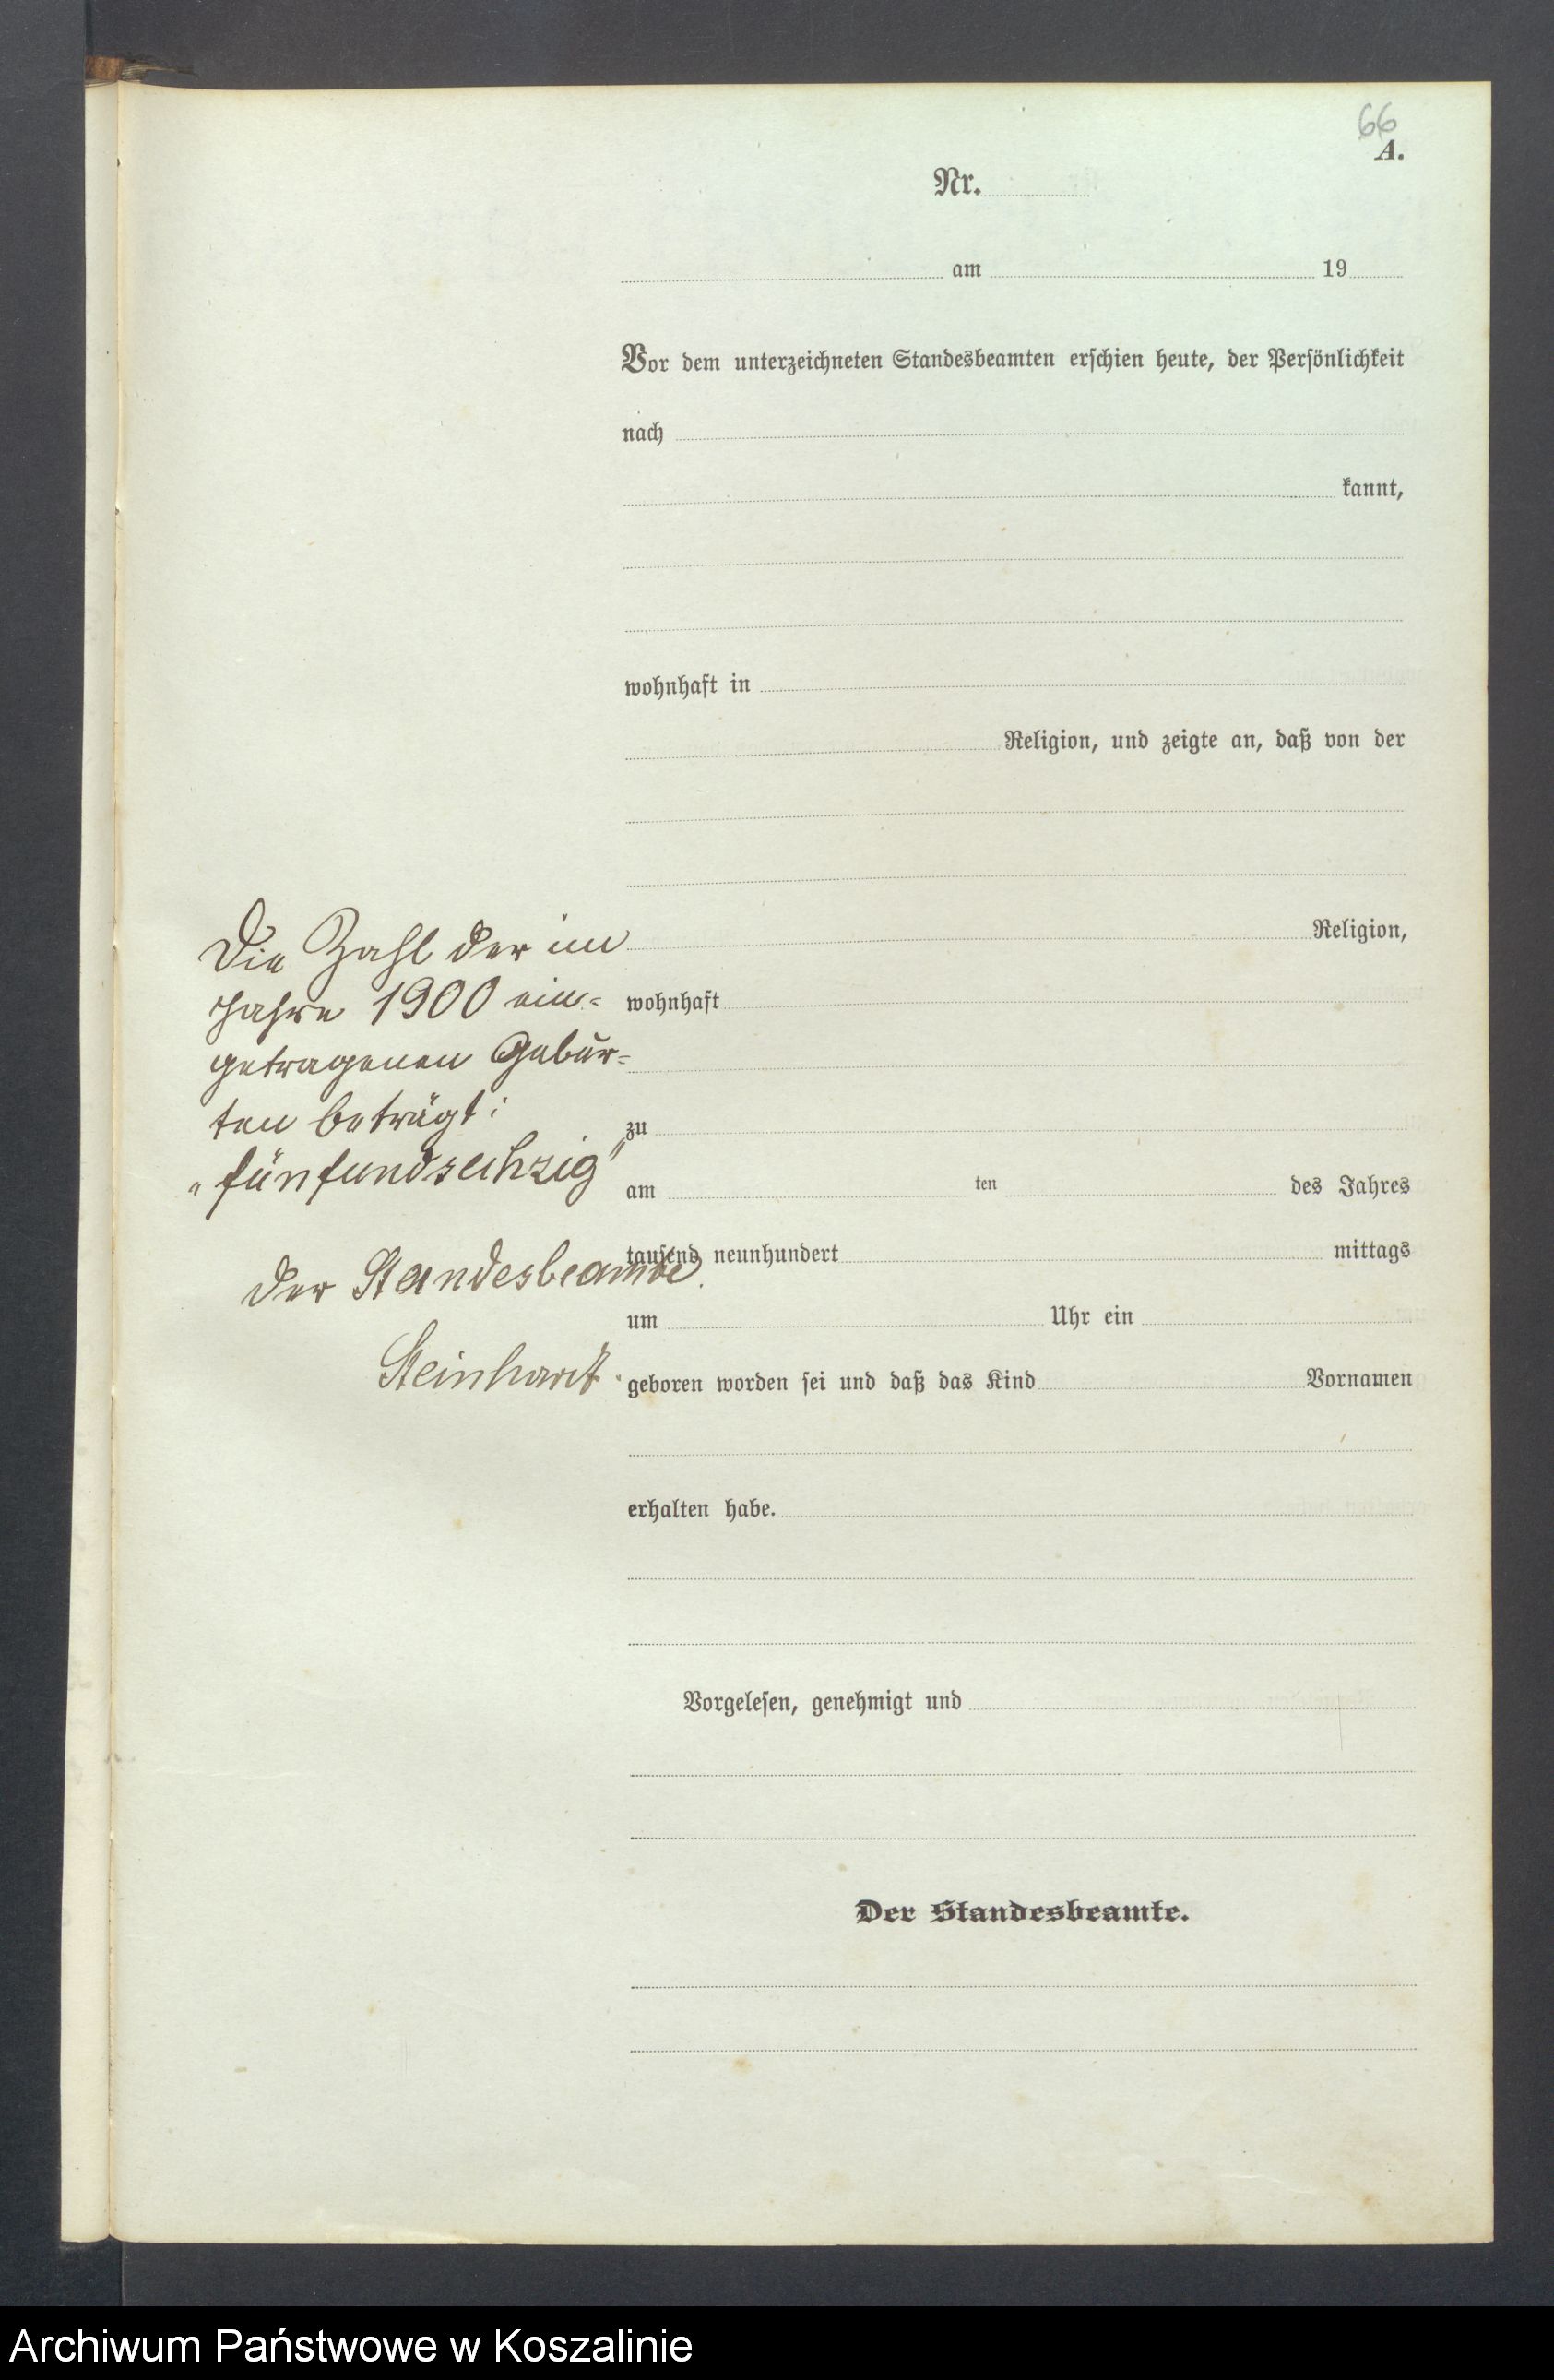 66
A.
Nr.
am 19
Vor dem unterzeichneten Standesbeamten erschien heute, der Persönlichkeit
nach
kannt,
wohnhaft in
Religion, und zeigte an, daß von der
Die Zahl der im
Religion,
Jahre 1900 ein-
wohnhaft
getragenen Gebur-
ten beträgt:
zu
"fünfundsechzig"
am ten des Jahres
tausend neunhundert mittags
der Standesbeamte.
um Uhr ein
Steinhardt.
geboren worden sei und daß das Kind Vornamen
erhalten habe.
Vorgelesen, genehmigt und
Der Standesbeamte.
Archiwum Państwowe w Koszalinie